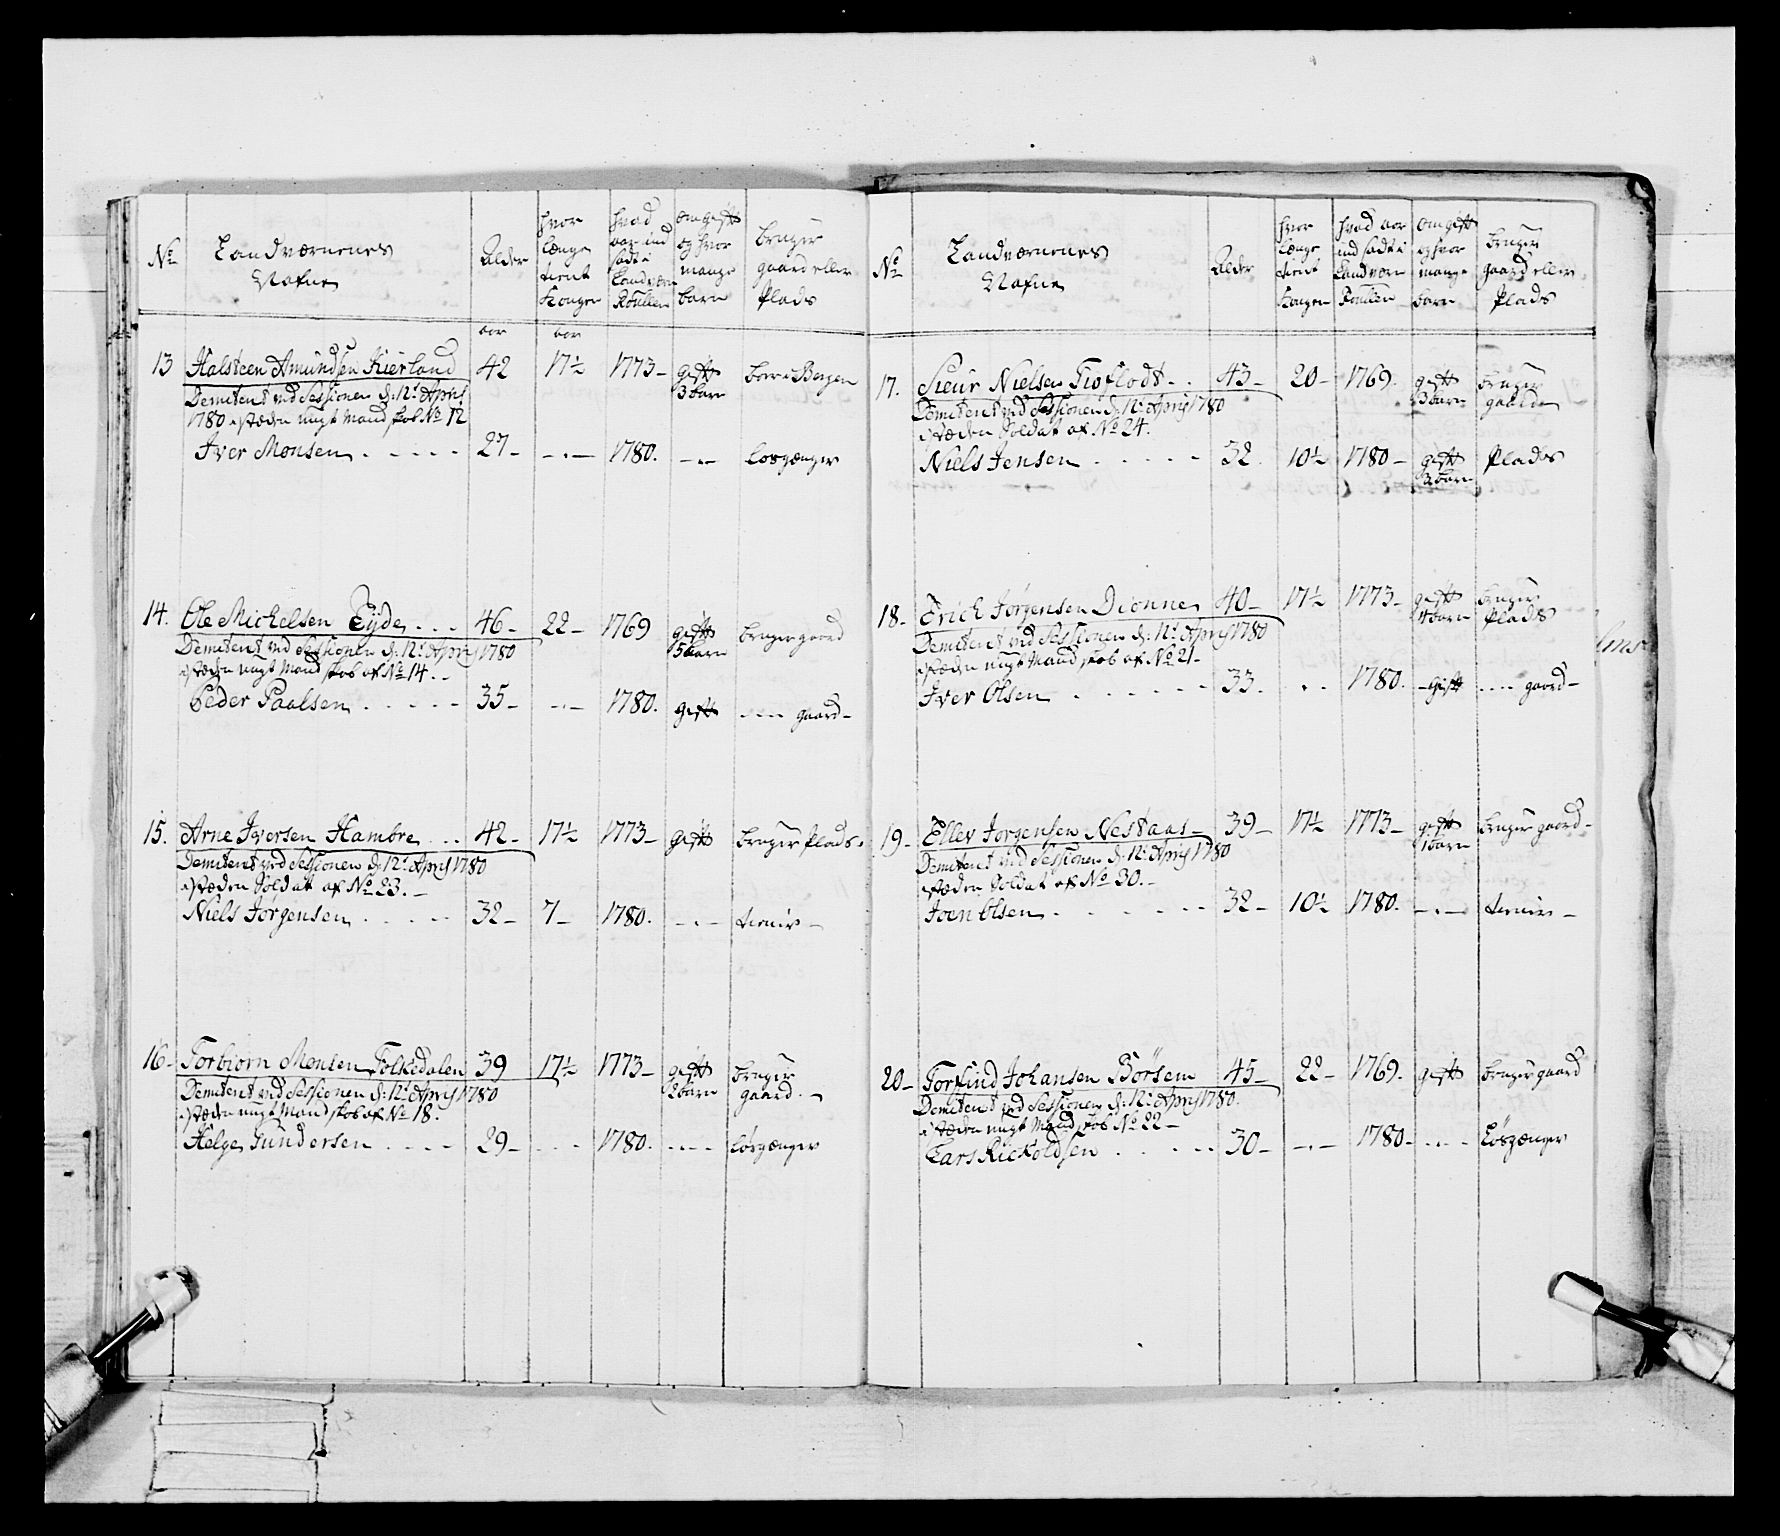 No
Landværnenes
Nafne
Alder
hvor
længe
tient
Kongen
hvad
aar ind
sadt i
Landværn
Roullen
om gift
og hvor
mange
barn
bruger
gaard eller
Plads
aar
aar
13 Halsteen Amundsen Kierland 42 17½ 1773- gift 3 barn boer i Bergen
Demitent ved Sessionen d: 12t Aprij
1780 i stæden ungt Mand skob No 12
Iver Monsen 27- -.- 1780. -.- losgænger
14. Ole Michelsen Eÿde 46- 22- 1769 gift 5 barn bruger gaard
Demitent ved Sessionen d: 12t Aprij 1780
i stæden ungt Mand skob af No 14.-
Peder Paalsen 35- -.- 1780. gift .... gaard-
15. Arne Iversen Hambre 42- 17½ 1773- gift bruger Plads-
Demitent ved Sessionen d: 12t Aprij 1780
i stæden Soldat af No 23.-
Niels Jørgensen 32- 7- 1780. -.- tienis-
16- Torbiorn Monsen Folkedalen 39 17½ 1773- gift 2 barn bruger gaard.-
Demitent ved Sessionen d: 12t Aprij 1780
i stæden ungt Mand skob af No 18.
Helge Gundersen 29- ... 1780. .... losgænger
No
Landværnenes
Nafne
Alder
hvor
længe
tient
Kongen
hvad aar
ind sadt i
Landværn
Roullen
om gift
og hvor
mange
barn
bruger
gaard eller
Plads
17. Sieur Nielsen Tioflodt 43- 20- 1769. gift 3 barn bruger gaard
Demitent ved Sessionen d: 12t Aprij 1780
i stæden Soldat af No 24.
Niels Jensen 32. 10½ 1780- gift 2 barn Plads
18. Erich Jørgensen Dionne 40- 17½ 1773- gift 4 barn bruger Plads
Demitent ved Sessionen d: 12t Aprij 1780
i stæden ungt Mand skob af No 21-
Iver Olsen 33. .. 1780. -gift .... gaard-
19- Ellev Jorgensen Nestaas- 39- 17½ 1773- gift 1 barn bruger gaard-
Demitent ved Sessionen d: 12t Aprij 1780
i stæden Soldat af No 30.-
Joen Olsen 32- 10½ 1780. -.- tienis-
20- Torfind Johansen Børsem 45- 22- 1769. gift bruger gaard
Demitent ved Sessionen d: 12t Aprij 1780.
i stæden ungt Mand skob No 22-
Lars Richoldsen 30- -.- 1780- .... Losgænger